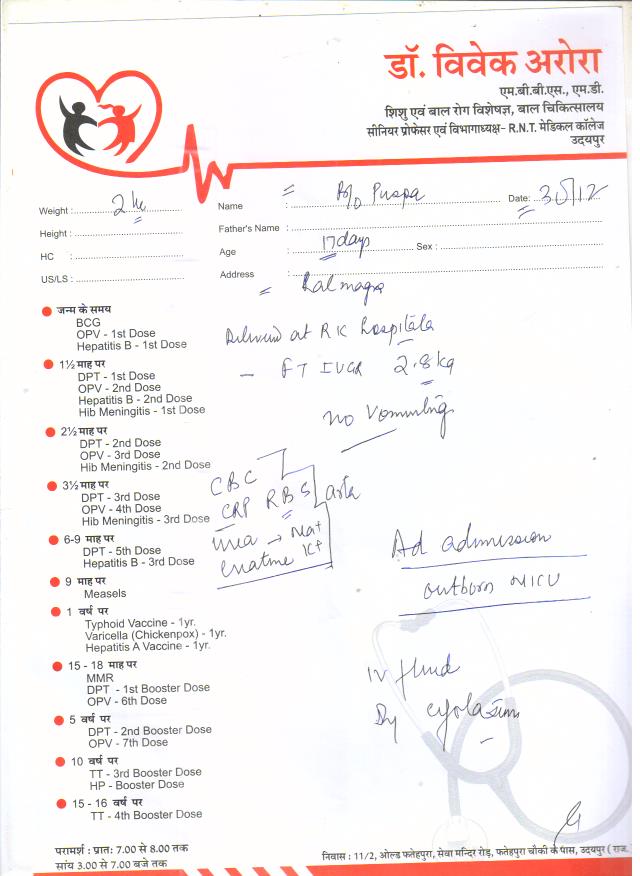 डॉ. विवेक अरोरा
एम.बी.बी.एस., एम.डी.
शिशु एवं बाल रोग विशेषज्ञ, बाल चिकित्सालय
सीनियर प्रोफेसर एवं विभागाध्यक्ष- R.N.T. मेडिकल कॉलेज
उदयपुर
Weight : 2 Name : B/O Puspa Date: 30/12
Height : Father's Name :
HC : Age : 17 days Sex :
US/LS : Address :
जन्म के समय
BCG
OPV - 1st Dose
Hepatitis B - 1st Dose
Delivered at RK hospital
1½ माह पर
DPT - 1st Dose
OPV - 2nd Dose
Hepatitis B - 2nd Dose
Hib Meningitis - 1st Dose
- FT IUGR 2.8 kg
No Vomiting
2½ माह पर
DPT - 2nd Dose
OPV - 3rd Dose
Hib Meningitis - 2nd Dose
3½ माह पर
DPT - 3rd Dose
OPV - 4th Dose
Hib Meningitis - 3rd Dose
CBC
CRP RBS
urea → Na+
K+
6-9 माह पर
DPT - 5th Dose
Hepatitis B - 3rd Dose
Ad admission
outborn NICU
9 माह पर
Measels
1 वर्ष पर
Typhoid Vaccine - 1yr.
Varicella (Chickenpox) - 1yr.
Hepatitis A Vaccine - 1yr.
15 - 18 माह पर
MMR
DPT - 1st Booster Dose
OPV - 6th Dose
IV fluid
5 वर्ष पर
DPT - 2nd Booster Dose
OPV - 7th Dose
10 वर्ष पर
TT - 3rd Booster Dose
HP - Booster Dose
15 - 16 वर्ष पर
TT - 4th Booster Dose
परामर्श : प्रातः 7.00 से 8.00 तक
सांय 3.00 से 7.00 बजे तक
निवास : 11/2, ओल्ड फतेहपुरा, सेवा मन्दिर रोड़, फतेहपुरा चौकी के पास, उदयपुर (राज.